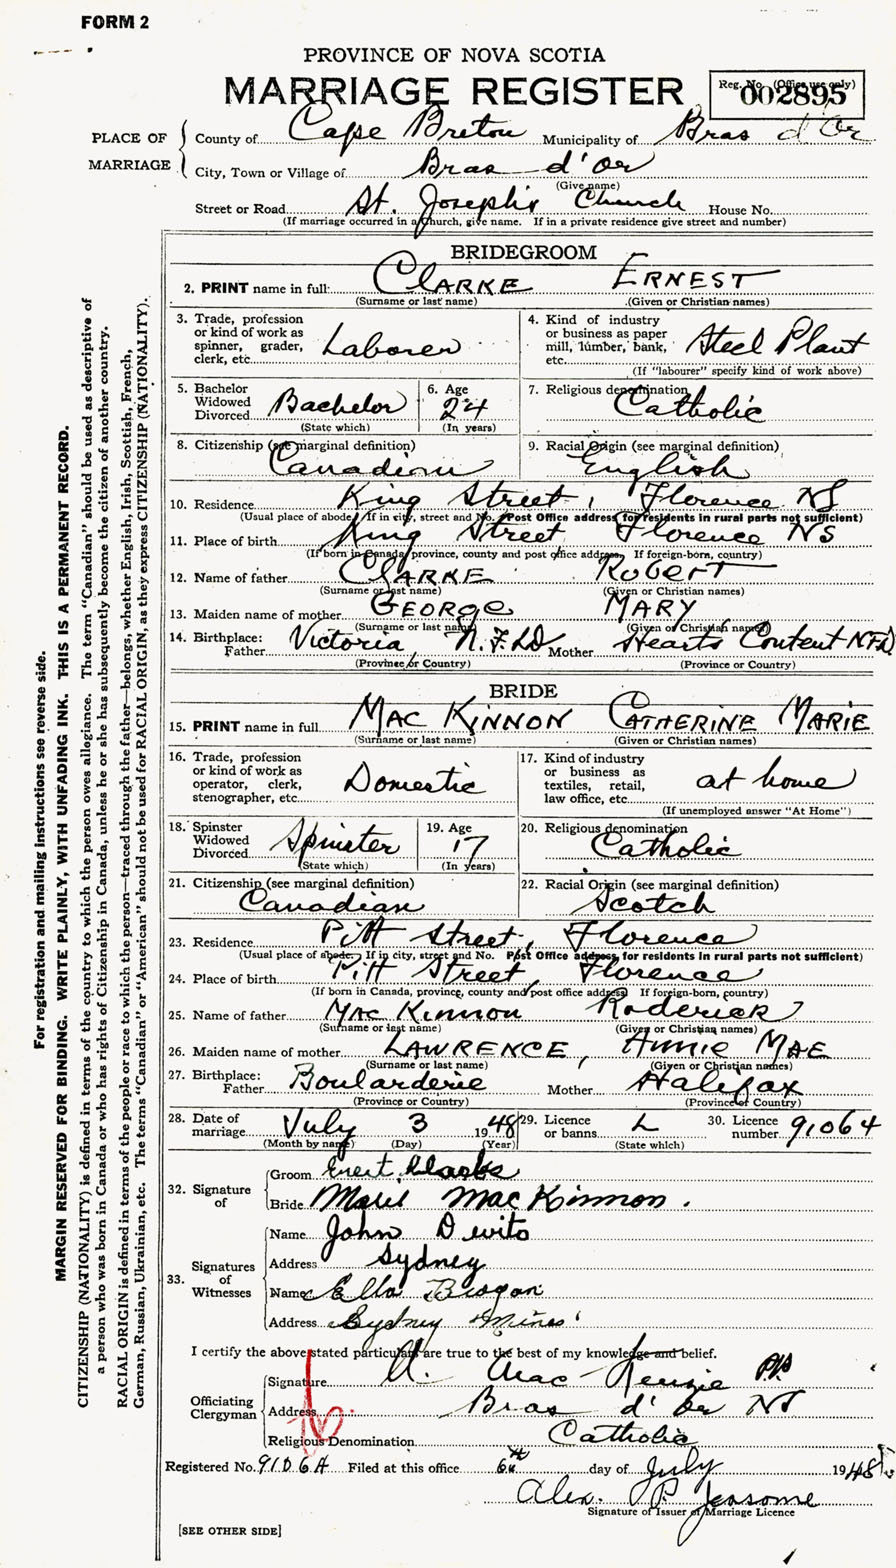 FORM 2
PROVINCE OF NOVA SCOTIA
MARRIAGE REGISTER
Reg. No. (Office use only)
002895
PLACE OF MARRIAGE
County of Cape Breton Municipality of Bras d'Or
City, Town or Village of Bras d'Or
(Give name)
Street or Road St. Joseph's Church House No.
(If marriage occurred in a church, give name. If in a private residence give street and number)
BRIDEGROOM
2. PRINT name in full: CLARKE ERNEST
(Surname or last name) (Given or Christian names)
3. Trade, profession or kind of work as spinner, grader, clerk, etc. Laborer
4. Kind of industry or business as paper mill, lumber, bank, etc. Steel Plant
(If "labourer" specify kind of work above)
5. Bachelor Widowed Divorced Bachelor
(State which)
6. Age 24
(In years)
7. Religious denomination Catholic
8. Citizenship (see marginal definition) Canadian
9. Racial Origin (see marginal definition) English
10. Residence King Street, Florence NS
(Usual place of abode. If in city, street and No. Post Office address for residents in rural parts not sufficient)
11. Place of birth King Street Florence NS
(If born in Canada, province, county and post office address. If foreign-born, country)
12. Name of father CLARKE ROBERT
(Surname or last name) (Given or Christian names)
13. Maiden name of mother GEORGE MARY
(Surname or last name) (Given or Christian names)
14. Birthplace: Father Victoria, N.F.LD Mother Hearts Content NFLD
(Province or Country) (Province or Country)
BRIDE
15. PRINT name in full MAC KINNON CATHERINE MARIE
(Surname or last name) (Given or Christian names)
16. Trade, profession or kind of work as operator, clerk, stenographer, etc. Domestic
17. Kind of industry or business as textiles, retail, law office, etc. at home
(If unemployed answer "At Home")
18. Spinster Widowed Divorced Spinster
(State which)
19. Age 17
(In years)
20. Religious denomination Catholic
21. Citizenship (see marginal definition) Canadian
22. Racial Origin (see marginal definition) Scotch
23. Residence Pitt Street, Florence
(Usual place of abode. If in city, street and No. Post Office address for residents in rural parts not sufficient)
24. Place of birth Pitt Street, Florence
(If born in Canada, province, county and post office address. If foreign-born, country)
25. Name of father Mac Kinnon Roderick
(Surname or last name) (Given or Christian names)
26. Maiden name of mother LAWRENCE, Annie MAE
(Surname or last name) (Given or Christian names)
27. Birthplace: Father Boularderie Mother Halifax
(Province or Country) (Province or Country)
28. Date of marriage July 3 1948
(Month by name) (Day) (Year)
29. Licence or banns L
(State which)
30. Licence number 91064
32. Signature of
Groom Clarke
Bride Marie MacKinnon.
33. Signatures of Witnesses
Name John Devito
Address Sydney
Name Ella Brogan
Address Sydney Mines
I certify the above stated particulars are true to the best of my knowledge and belief.
Officiating Clergyman
Signature Mac Kenzie PP
Address Bras d'Or NS
Religious Denomination Catholic
Registered No. 91064 Filed at this office 6th day of July 1948
Alex. P. Jessome
Signature of Issuer of Marriage Licence
[SEE OTHER SIDE]
For registration and mailing instructions see reverse side.
MARGIN RESERVED FOR BINDING. WRITE PLAINLY, WITH UNFADING INK. THIS IS A PERMANENT RECORD.
CITIZENSHIP (NATIONALITY) is defined in terms of the country to which the person owes allegiance. The term "Canadian" should be used as descriptive of
a person who was born in Canada or who has rights of Citizenship in Canada, unless he or she has subsequently become the citizen of another country.
RACIAL ORIGIN is defined in terms of the people or race to which the person—traced through the father—belongs, whether English, Irish, Scottish, French,
German, Russian, Ukrainian, etc. The terms "Canadian" or "American" should not be used for RACIAL ORIGIN, as they express CITIZENSHIP (NATIONALITY).